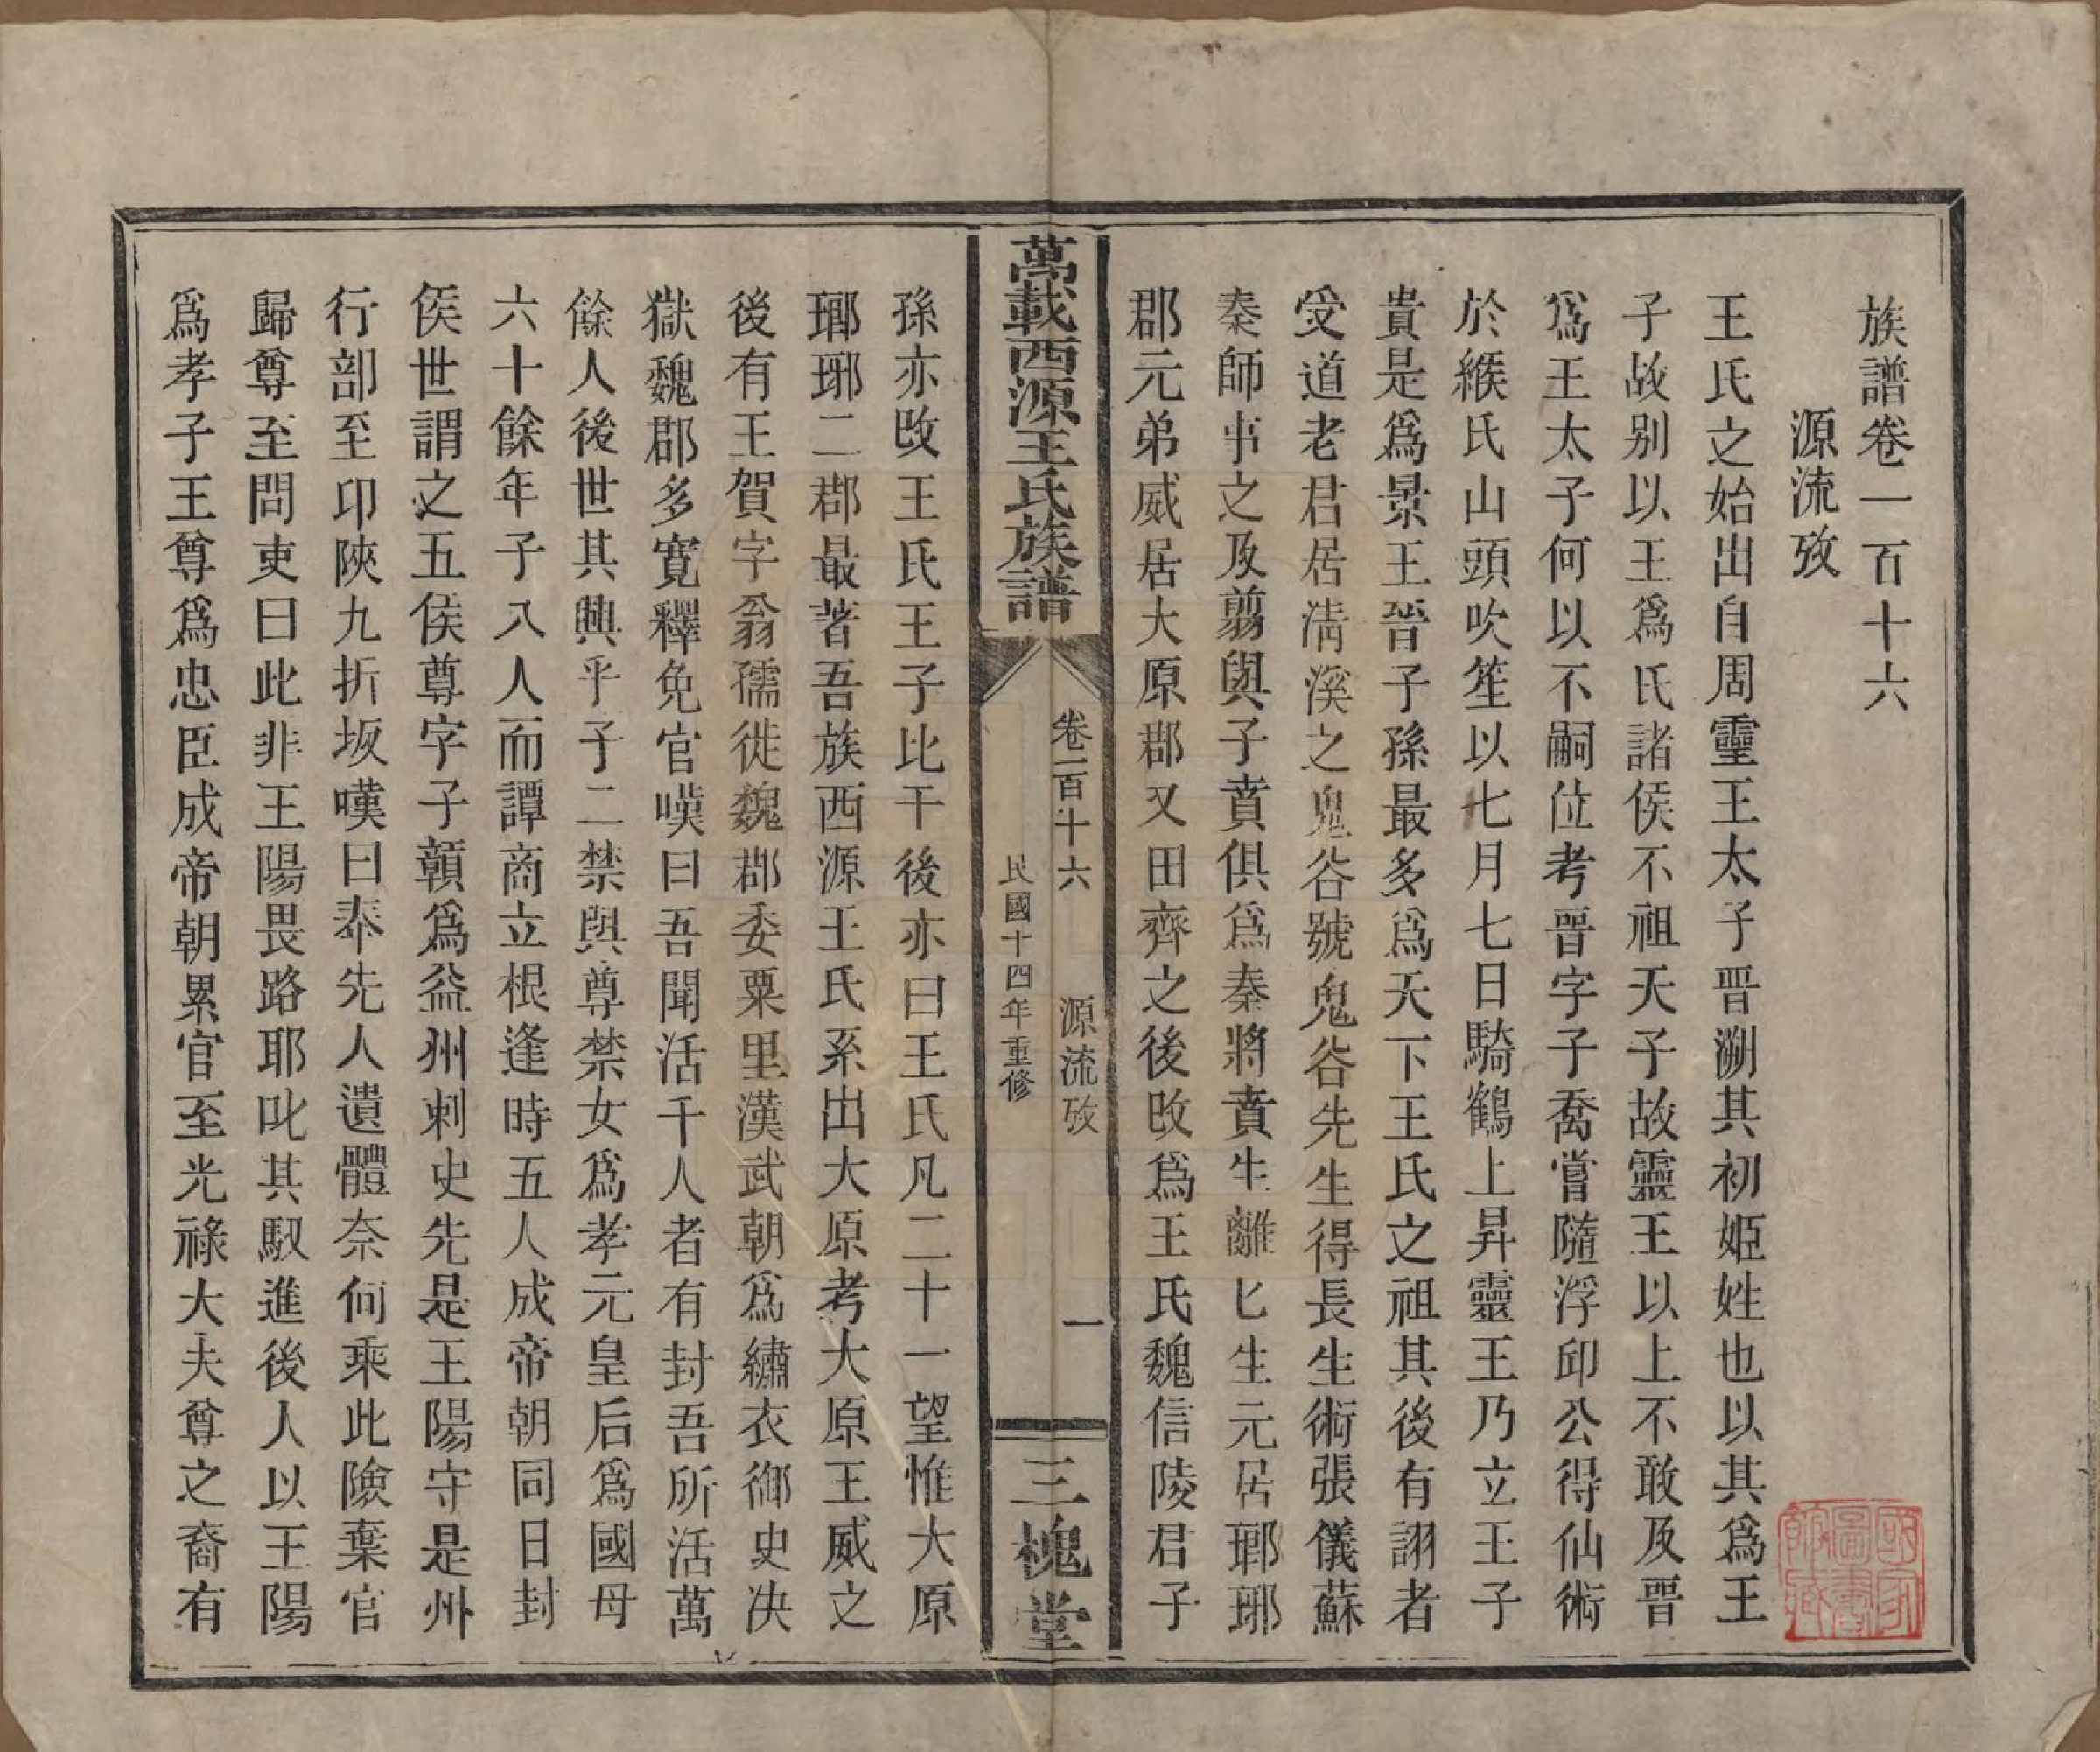 族譜卷一百十六
源流攷
王氏之始出自周靈王太子晋溯其初姬姓也以其爲王
子故别以王爲氏諸侯不祖天子故靈王以上不敢及晋
爲王太子何以不嗣位考晋字子喬嘗隨浮邱公得仙術
於緱氏山頭吹笙以七月七日騎鶴上昇靈王乃立王子
貴是爲景王晉子孫最多爲天下王氏之祖其後有詡者
受道老君居淸溪之鬼谷號鬼谷先生得長生術張儀蘇
秦師事之及翦與子賁俱爲秦將賁生離匕生元居瑯琊
郡元弟威居大原郡又田齊之後改爲王氏魏信陵君子
萬載西源王氏族譜
卷一百十六
源流攷
一
民國十四年重修
三槐堂
孫亦改王氏王子比干後亦曰王氏凡二十一望惟大原
瑯琊二郡最著吾族西源王氏系出大原考大原王威之
後有王賀字翁孺徙魏郡委粟里漢武朝爲繡衣御史决
獄魏郡多寛釋免官嘆曰吾聞活千人者有封吾所活萬
餘人後世其興乎子二禁與尊禁女爲孝元皇后爲國母
六十餘年子八人而譚商立根逢時五人成帝朝同日封
侯世謂之五侯尊字子贛爲益州刺史先是王陽守是州
行部至印陝九折坂嘆曰奉先人遺體奈何乘此險棄官
歸尊至問吏曰此非王陽畏路耶叱其馭進後人以王陽
爲孝子王尊爲忠臣成帝朝累官至光祿大夫尊之裔有
國家圖書館藏